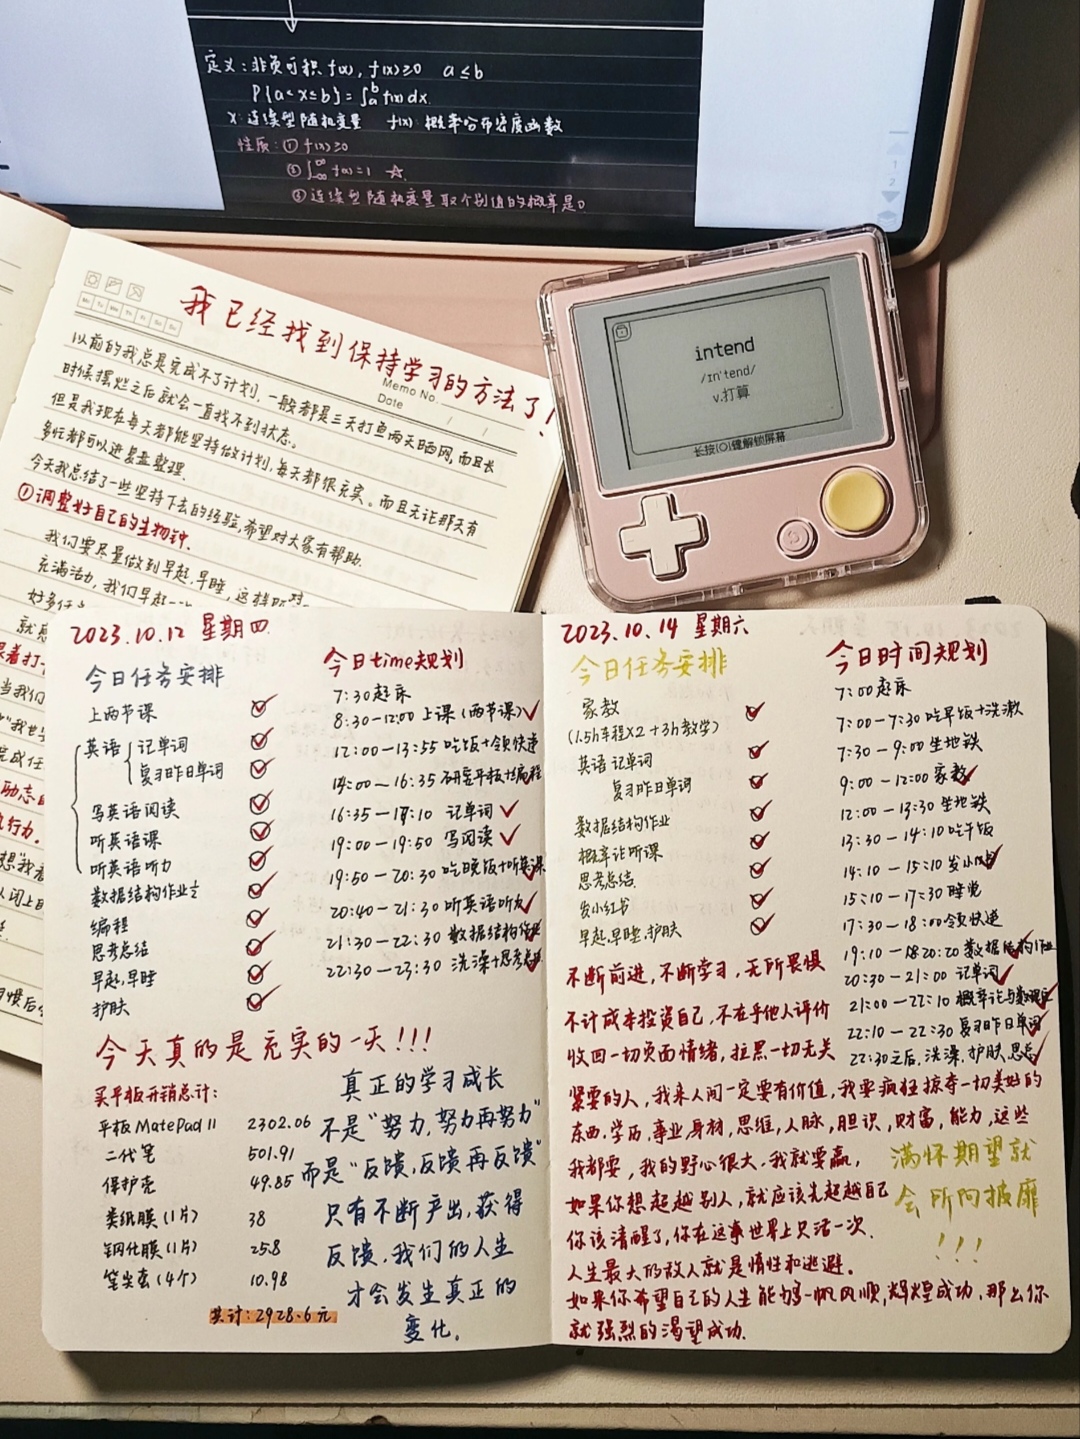 定义：非负可积 f(x), f(x)≥0 a≤b
P{a<x≤b}=∫ₐᵇf(x)dx.
X：连续型随机变量 f(x)：概率分布密度函数
性质：① f(x)≥0
② ∫₋∞^∞ f(x)=1 ☆.
③ 连续型随机变量取个别值的概率是0
1
2
我已经找到保持学习的方法了！
Memo No.
Date / /
Mo Tu We Th Fr Sa Su
以前的我总是完成不了计划，一般都是三天打鱼两天晒网，而且长
时候摆烂之后就会一直找不到状态。
但是我现在每天都能坚持做计划，每天都很充实。而且无论那天有
多忙都可以进复盘整理.
今天我总结了一些坚持下去的经验，希望对大家有帮助.
①调整好自己的生物钟.
我们要尽量做到早起，早睡，这样
充满活力，我们早起一
好多任
就感
跟着打
当我们
"我也
完成任
行力.
想我
闭上
惯后
intend
/ɪn'tend/
v.打算
长按(O)键解锁屏幕
2023.10.12 星期四.
今日任务安排
上两节课
英语 记单词
复习昨日单词
写英语阅读
听英语课
听英语听力
数据结构作业½
编程
思考总结
早起，早睡
护肤
今日time规划
7:30起床
8:30—12:00 上课（两节课）
12:00—13:55 吃饭+领快递
14:00—16:35 研究平板+编程
16:35—18:10 记单词
19:00—19:50 写阅读
19:50—20:30 吃晚饭+听英课
20:40—21:30 听英语听力
21:30—22:30 数据结构作业
22:30—23:30 洗澡+思考总结
今天真的是充实的一天！！！
买平板开销总计：
平板MatePad 11 2302.06
二代笔 501.91
保护壳 49.85
类纸膜（1片） 38
钢化膜（1片） 25.8
笔尖套（4个） 10.98
共计：2928.6元
真正的学习成长
不是“努力，努力再努力”
而是“反馈，反馈再反馈”
只有不断产出，获得
反馈.我们的人生
才会发生真正的
变化。
2023.10.14 星期六
今日任务安排
家教
(1.5h车程X2+3h教学)
英语 记单词
复习昨日单词
数据结构作业
概率论听课
思考总结.
发小红书
早起，早睡，护肤
今日时间规划
7:00起床
7:00—7:30 吃早饭+洗漱
7:30—9:00 坐地铁
9:00—12:00 家教
12:00—13:30 坐地铁
13:30—14:10 吃午饭
14:10—15:10 发小红书
15:10—17:30 睡觉
17:30—18:00 领快递
19:10—20:20 数据结构作业
20:30—21:00 记单词
21:00—22:10 概率论与数理
22:10—22:30 复习昨日单词
22:30之后，洗澡，护肤，思总
不断前进，不断学习，无所畏惧
不计成本投资自己，不在乎他人评价
收回一切负面情绪，拉黑一切无关
紧要的人，我来人间一定要有价值，我要疯狂掠夺一切美好的
东西.学历，事业，身材，思维，人脉，胆识，财富，能力，这些
我都要，我的野心很大.我就要赢，
如果你想超越别人，就应该先超越自己
你该清醒了，你在这事世界上只活一次.
人生最大的敌人就是惰性和逃避。
如果你希望自己的人生能够一帆风顺，辉煌成功，那么你
就强烈的渴望成功.
满怀期望就
会所向披靡
！！！